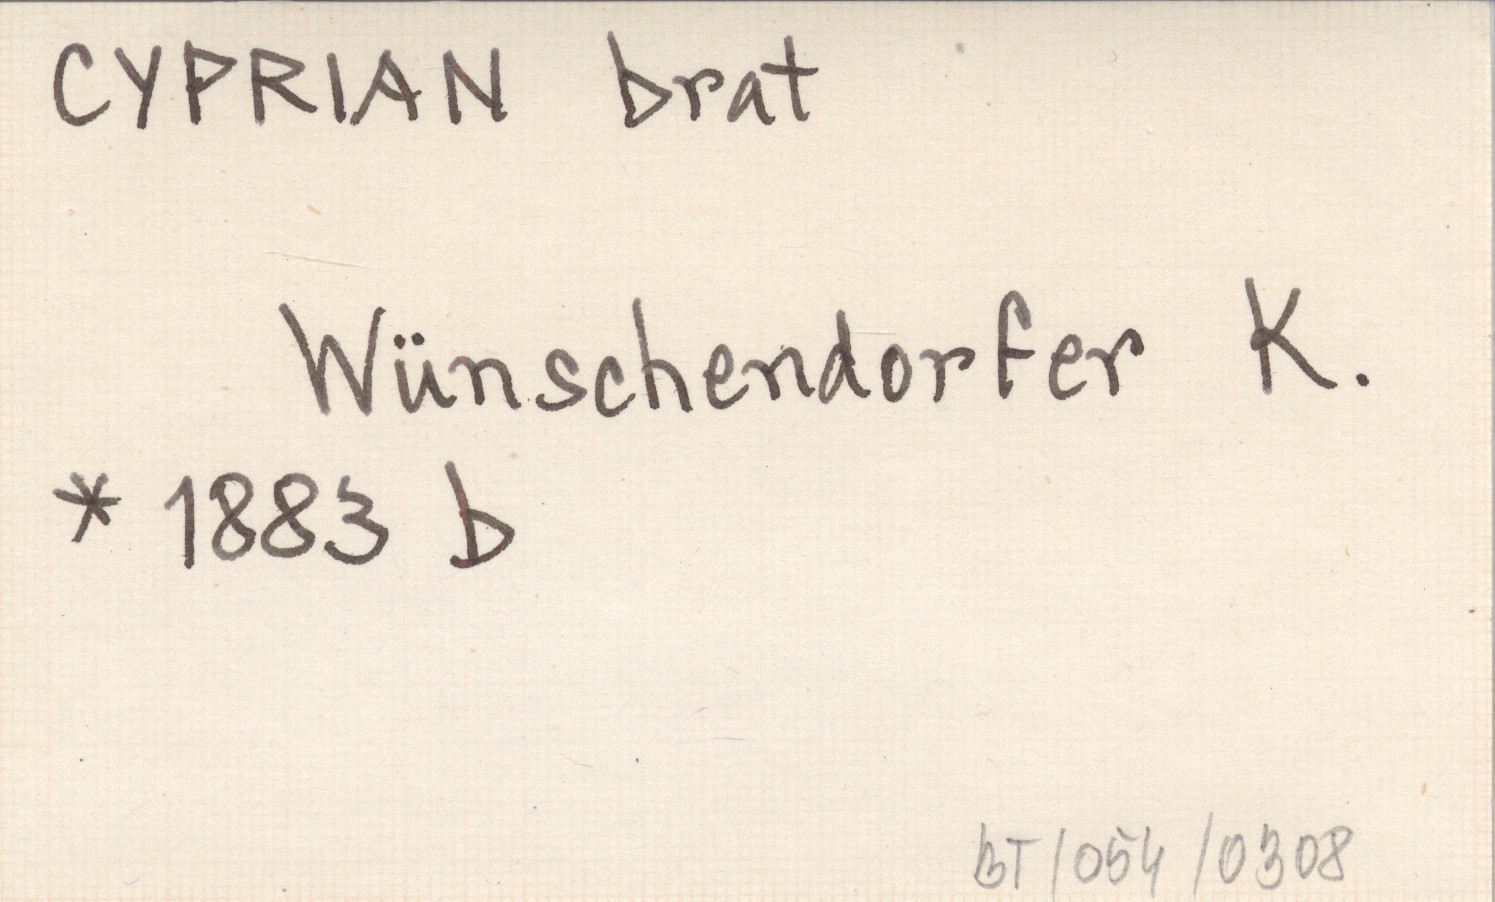 CYPRIAN brat
Wünschendorfer K.
* 1883 b
BT/054/0308